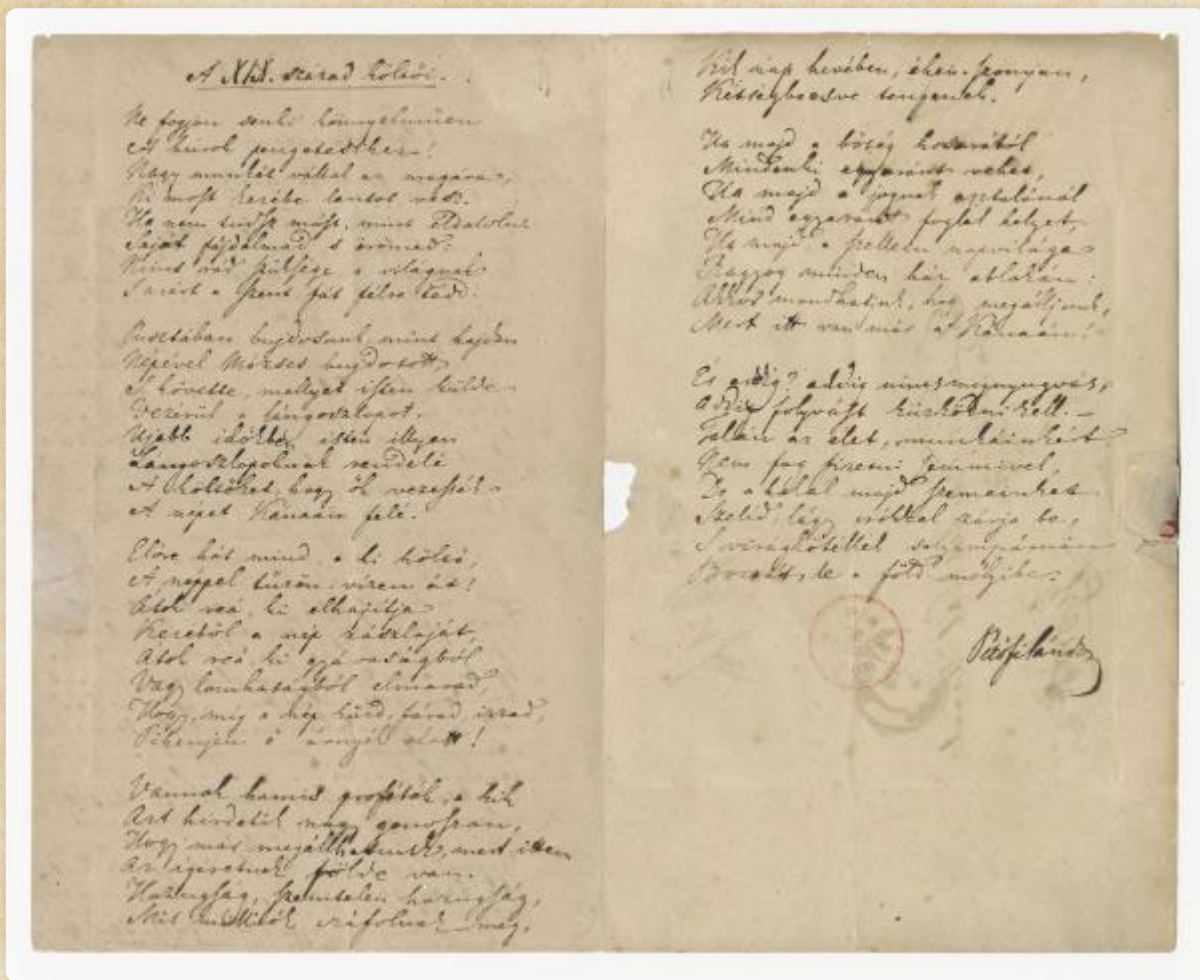 A XIX. század költői.
Ne fogjon senki könnyelműen
A húrok pengetésihez!
Nagy munkát vállal az magára,
Ki most kezébe lantot vesz.
Ha nem tudsz mást, mint eldalolni
Saját fájdalmad s örömed:
Nincs rád szüksége a világnak
S azért a szent fát félre tedd.
Pusztában bujdosunk, mint hajdan
Népével Mózses bujdosott,
S követte, mellyet isten külde
Vezérül, a lángoszlopot.
Ujabb időkben isten illyen
Lángoszlopoknak rendelé
A költőket, hogy ők vezessék
A népet Kánaán felé.
Előre hát mind, a ki költő,
A néppel tűzön vízen át!
Átok reá, ki elhajítja
Kezéből a nép zászlaját,
Átok reá, ki gyávaságból
Vagy lomhaságból elmarad,
Hogy, míg a nép küzd, fárad, izzad,
Pihenjen ő árnyék alatt!
Vannak hamis próféták, a kik
Azt hirdetik nagy gonoszan,
Hogy már megállhatunk, mert itten
Az igéretnek földe van.
Hazugság, szemtelen hazugság,
Mit milliók cáfolnak meg,
Kik nap hevében, éhen-szomjan,
Kétségbeesve tengenek.
Ha majd a bőség kosarából
Mindenki egyaránt vehet,
Ha majd a jognak asztalánál
Mind egyaránt foglal helyet,
Ha majd a szellem napvilága
Ragyog minden ház ablakán:
Akkor mondhatjuk, hogy megálljunk,
Mert itt van már a Kánaán!
És addig? addig nincs megnyugvás,
Addig folyvást küszködni kell. —
Talán az élet, munkáinkért
Nem fog fizetni semmivel,
De a halál majd szemeinket
Szelíd, lágy csókkal zárja be,
S virágkötéllel selyempárnán
Bocsát le a föld mélyibe.
Petőfi Sándor